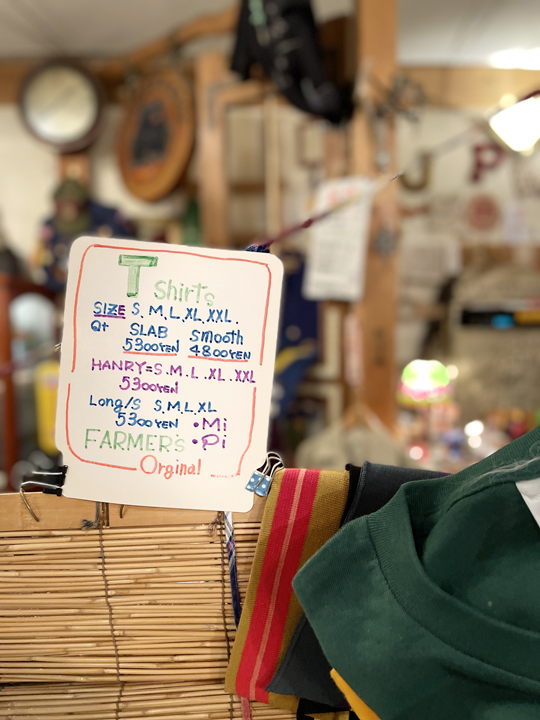 T Shirts
SIZE S, M, L, XL, XXL
Qt SLAB Smooth
5300YEN 4800YEN
HANRY=S.M.L.XL.XXL
5300YEN
Long/S S,M,L,XL
5300YEN •Mi
FARMER'S •Pi
Orginal
J P